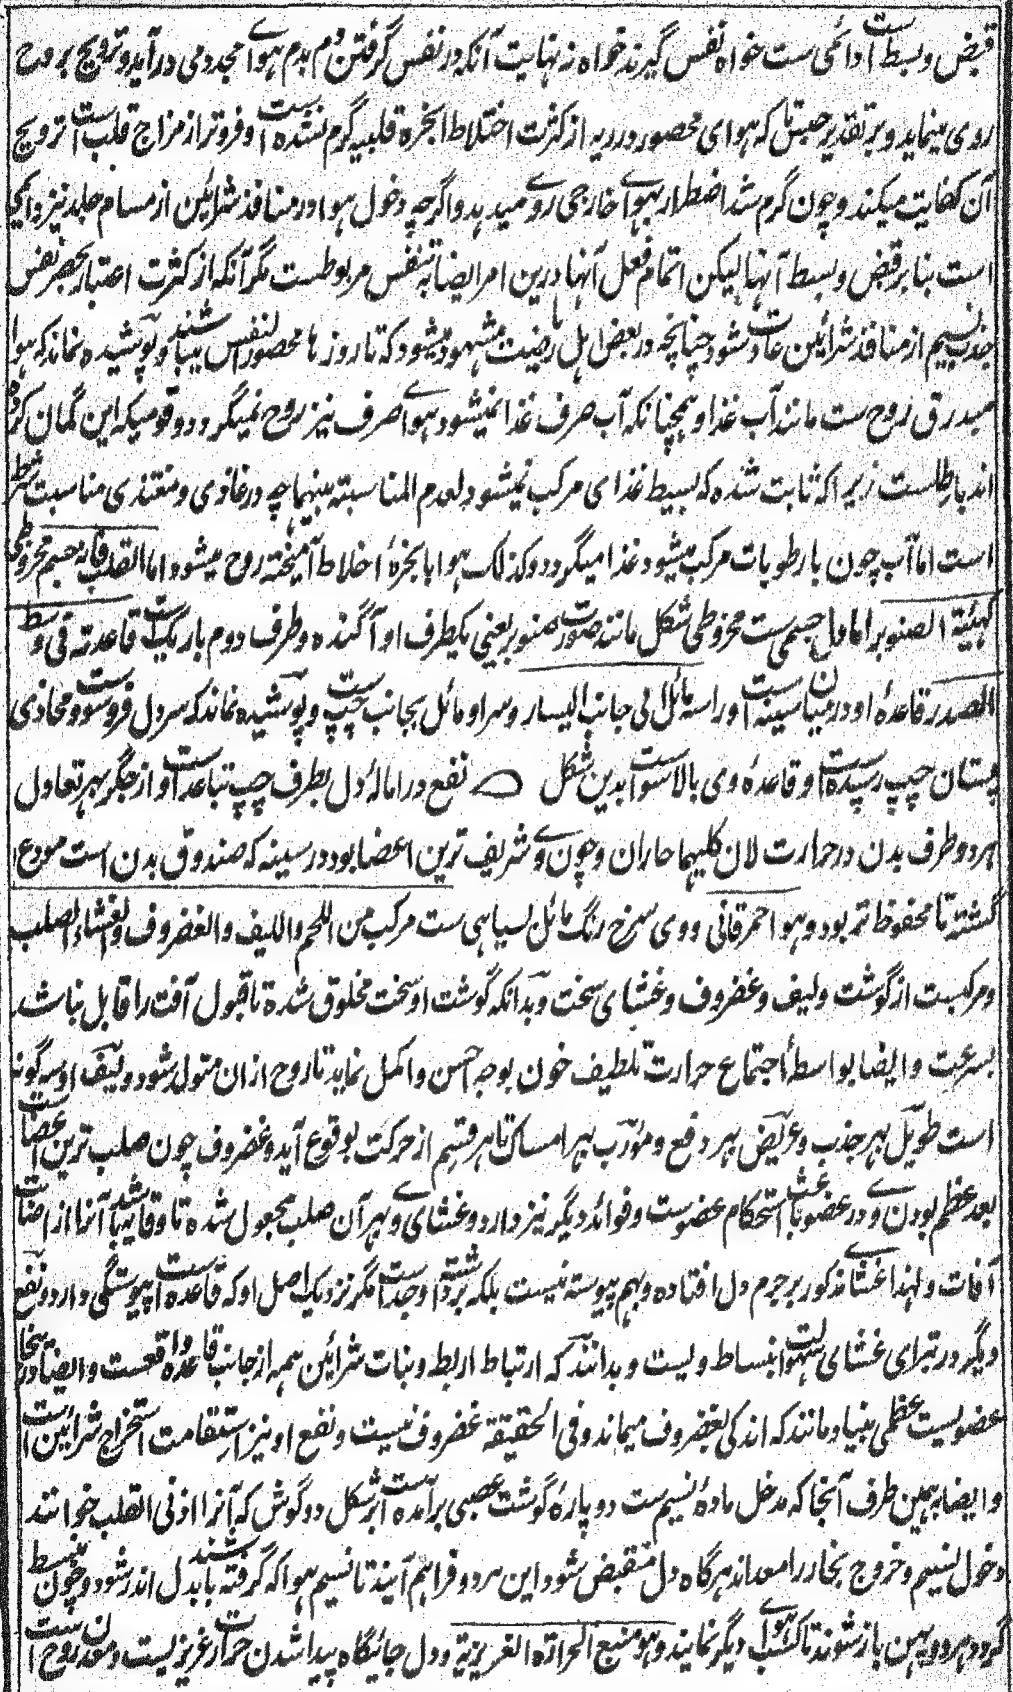 قبض و بسط آ دائمی ست خواه نفس گیرند خواه نه نهایت آنکه در نفس گرفتن دم بدم هوای مجدد می درآید و ترویج بروح
روی مینماید و بر تقدیر حبس تا که هوای محصور در ریه از کثرت اختلاط ابخره قلبیه گرم نشده است و فروتر از مزاج قلب است ترویج
آن کفایت میکند و چون گرم شد اضطرار بهوای خارجی روی میدهد و اگرچه دخول هوا در منافذ شرائین از مسام جلد نیز دائمی
است بنا بر قبض و بسط آنها لیکن اتمام فعل آنها درین امر ایضا به تنفس مربوطست مگر آنکه از کثرت اعتبار بحصر نفس
جذب نسیم از منافذ شرائین عادت شود چنانچه در بعض اهل ریاضت مشهود میشود که تا روزها محصور النفس میباشند و پوشیده نماند که هوا
مبدرق روح ست مانند آب غذا و همچنانکه آب صرف غذا نمیشود هوای صرف نیز روح نمیگردد و قومیکه این گمان کرده
اند باطلست زیرا که ثابت شده که بسیط غذای مرکب نمیشود لعدم المناسبته بینهما چه در غاذی و مغتذی مناسبت شرط
است اما آب چون با رطوبات مرکب میشود غذا میگردد و کذلک هوا با بخرهٔ اخلاط آمیخته روح میشود اما القلب فانه جسم مخروطی
کهیئة الصنوبر اما دل جسمی ست مخروطی شکل مانند صورت صنوبر یعنی یکطرف او آگنده و طرف دوم باریک ست قاعدته فی وسط
الصدر قاعدهٔ او در میان سینه است و راسه مائل الی جانب الیسار و سر او مائل بجانب چپ ست و پوشیده نماند که سر دل فروسوست و محاذی
پستان چپ رسیده است و قاعدهٔ وی بالاسوست بدین شکل نفع در امالهٔ دل بطرف چپ تباعد اوست از جگر بهر تعادل
هر دو طرف بدن در حرارت لان کلیهما حاران و چون وی شریف ترین اعضا بود در سینه که صندوق بدن است مودع
گشته تا محفوظ تر بود و هو احمر قانی و وی سرخ رنگ مائل بسیاهی ست مرکب من اللحم و اللیف و الغضروف و الغشاء الصلب
و مرکبست از گوشت و لیف و غضروف و غشای سخت و بدانکه گوشت او سخت مخلوق شده تا قبول آفت را قابل نباشد
بسرعت و ایضا بواسطهٔ اجتماع حرارت تلطیف خون بوجه احسن و اکمل نماید تا روح ازان متولد شود و لیف او سه گونه
است طویل بهر جذب و عریض بهر دفع و مورب بهر امساک تا هر قسم از حرکت بوقوع آید و غضروف چون صلب ترین اعضاست
بعد عظم بودن وی در عضو باعث استحکام عضوست و فوائد دیگر نیز دارد و غشای وی بهر آن صلب مجعول شده تا وقایه باشد آنرا از اصابت
آفات و لهذا غشا مذکور بر جرم دل افتاده و بهم پیوسته نیست بلکه برداشته است و جدا مگر نزدیک اصل او که قاعده است پیوستگی دارد و نفع
دیگر در تبرای غشای سهولت انبساط و لیست و بدانند که ارتباط اربط و بنات شرائین همه از جانب قاعده واقعست و ایضا در اینجا
عضویست عظمی بنیاد مانند که اندکی بغضروف میماند و فی الحقیقة غضروف نیست و نفع او نیز استقامت استخراج شرائین است
و ایضا بهمین طرف آنجا که مدخل مادهٔ نسیم ست دو پارهٔ گوشت عصبی برآمده است بر شکل دو گوش که آنرا اذنی القلب خوانند
دخول نسیم و خروج بخار را معد اند هرگاه دل منقبض شود این هر دو فراهم آیند تا نسیم هوا که گرفته باشند بدل اندر شود و چون منبسط
گردد هر دو پهن باز شوند تا کسب هوای دیگر نمایند و هو منبع الحرارة الغریزیة و دل جائیگاه پیدا شدن حرارت غریزیست و معدن روح است